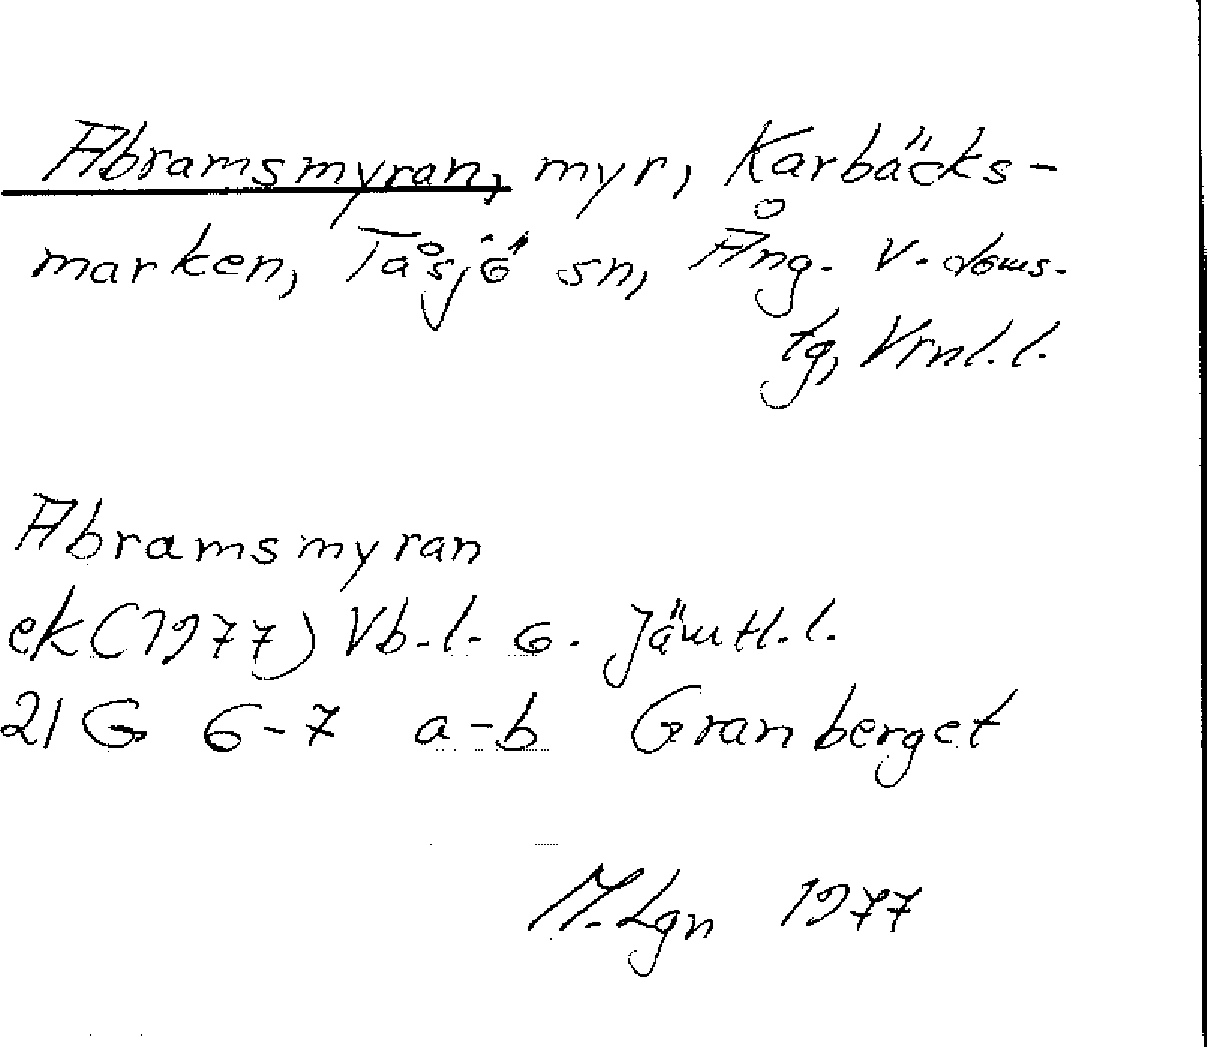 Abramsmyran, myr, Karbäcks-
marken, Tåsjö sn, Ång. V. doms.
tg, Vrnl. l.
Abramsmyran
ek (1977) Vb. l. o. Jämtl. l.
21 G 6-7 a-b Granberget
M. Lgn 1977